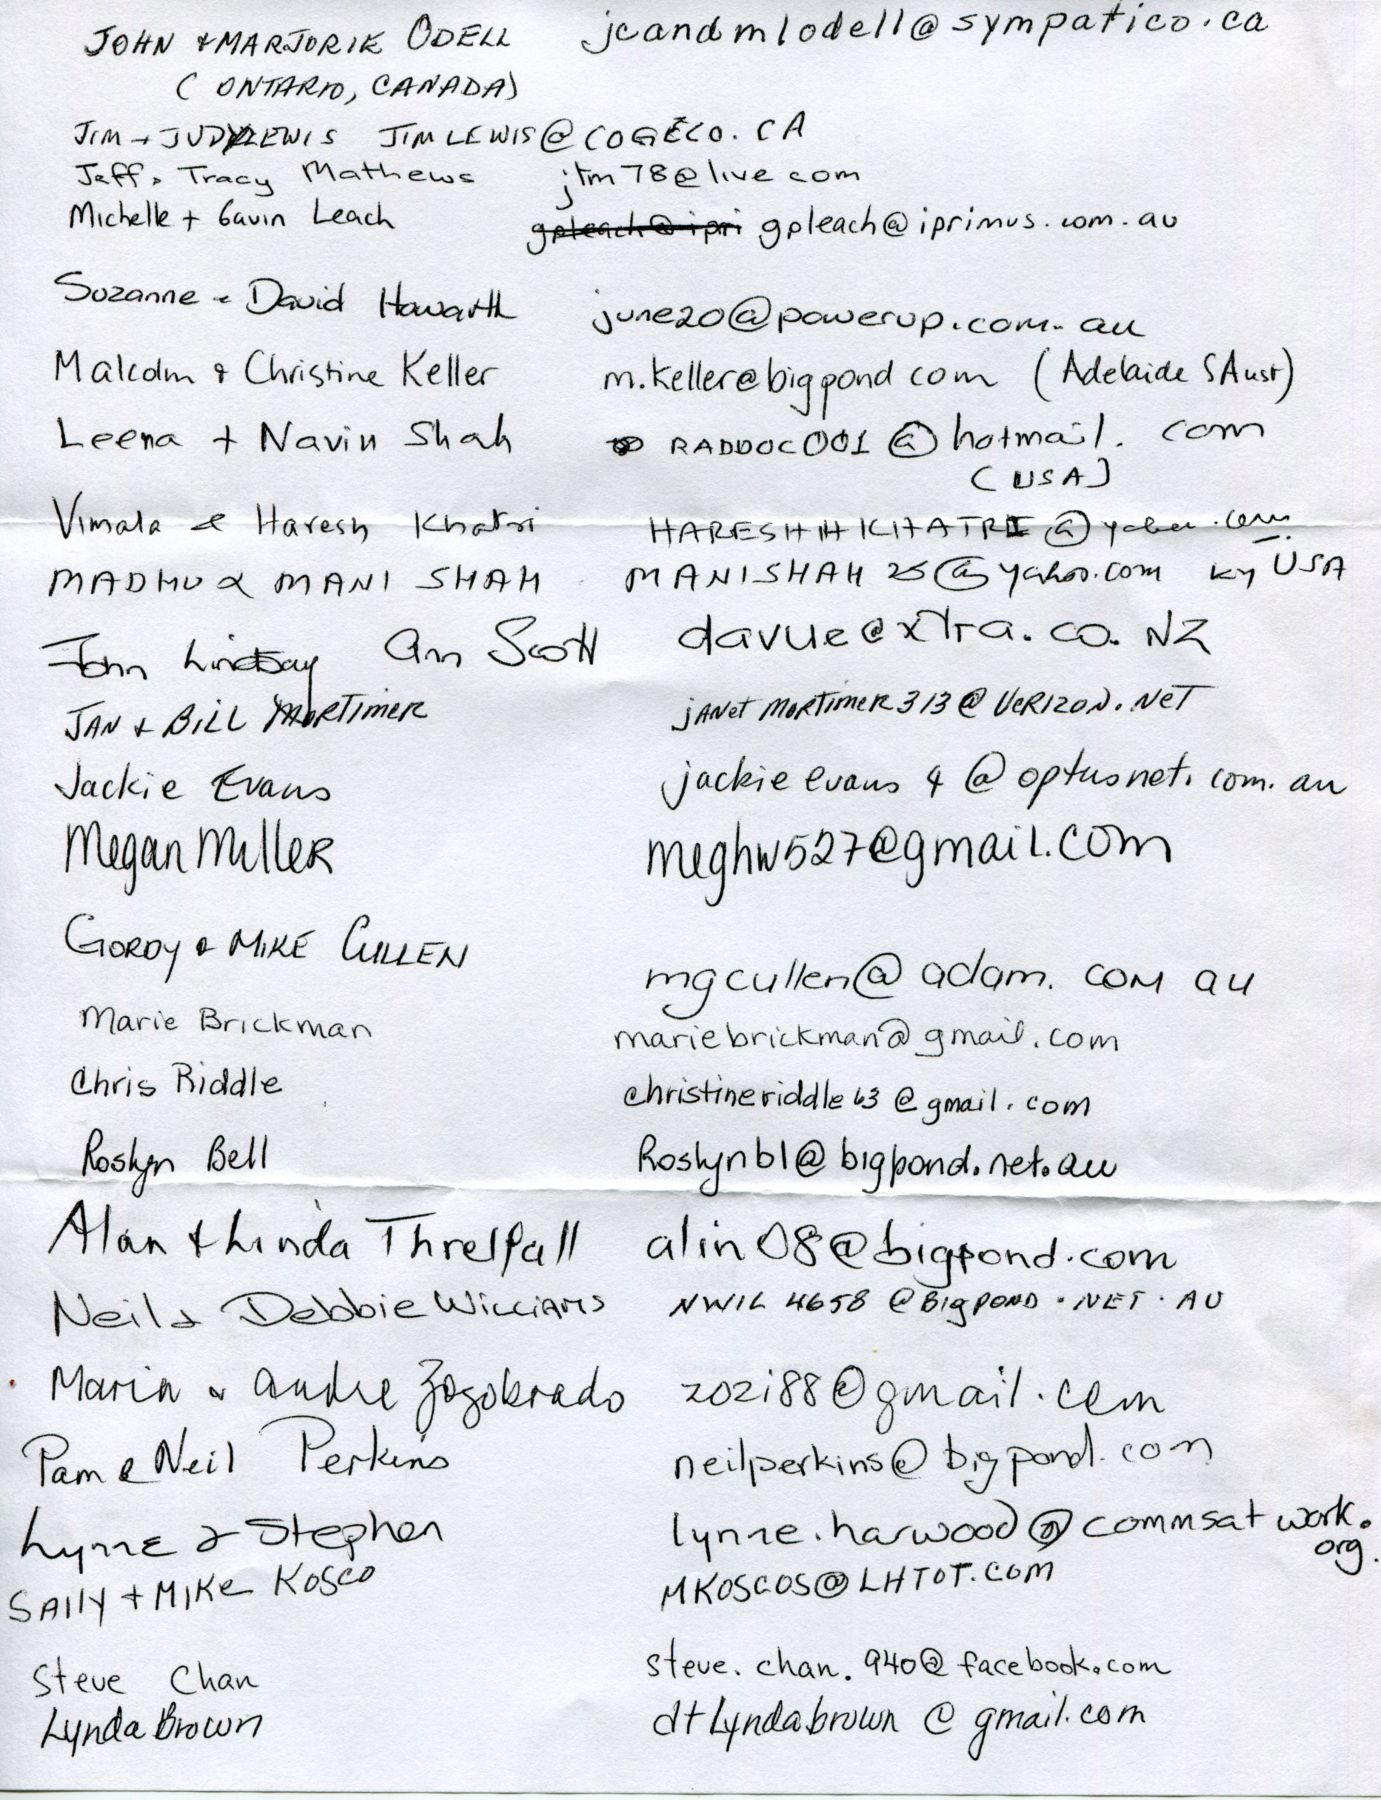 JOHN + MARJORIE ODELL jcandmlodell@sympatico.ca
(ONTARIO, CANADA)
JIM + JUDY LEWIS JIMLEWIS@COGECO.CA
Jeff + Tracy Mathews jtm78@live com
Michelle + Gavin Leach gpleach@ipri gpleach@iprimus.com.au
Suzanne + David Howarth june20@powerup.com.au
Malcolm & Christine Keller m.keller@bigpond com (Adelaide SAust)
Leena + Navin Shah RADDOC001@hotmail.com
(USA)
Vimala & Haresh Khatri HARESHHKHATRI@yahoo.com
MADHU & MANI SHAH MANISHAH25@yahoo.com KY USA
John Lindsay Ann Scott davue@xtra.co.NZ
JAN + BILL MORTIMER JANET MORTIMER313@VERIZON.NET
Jackie Evans jackie evans 4 @optusnet.com.au
Megan Miller meghw527@gmail.com
GORDY & MIKE CULLEN mgcullen@adam.com au
Marie Brickman mariebrickman@gmail.com
Chris Riddle christineriddle63@gmail.com
Roslyn Bell Roslynbl@bigpond.net.au
Alan + Linda Threlfall alin08@bigpond.com
Neil & Debbie Williams NWIL4658@BIGPOND.NET.AU
& Andre zozi88@gmail.com
Pam & Neil Perkins neilperkins@bigpond.com
Lynne & Stephen lynne.harwood@commsatwork.
org.
SALLY + MIKE KOSCO MKOSCOS@LHTOT.COM
Steve Chan steve.chan.940@facebook.com
Lynda Brown dtLyndabrown@gmail.com